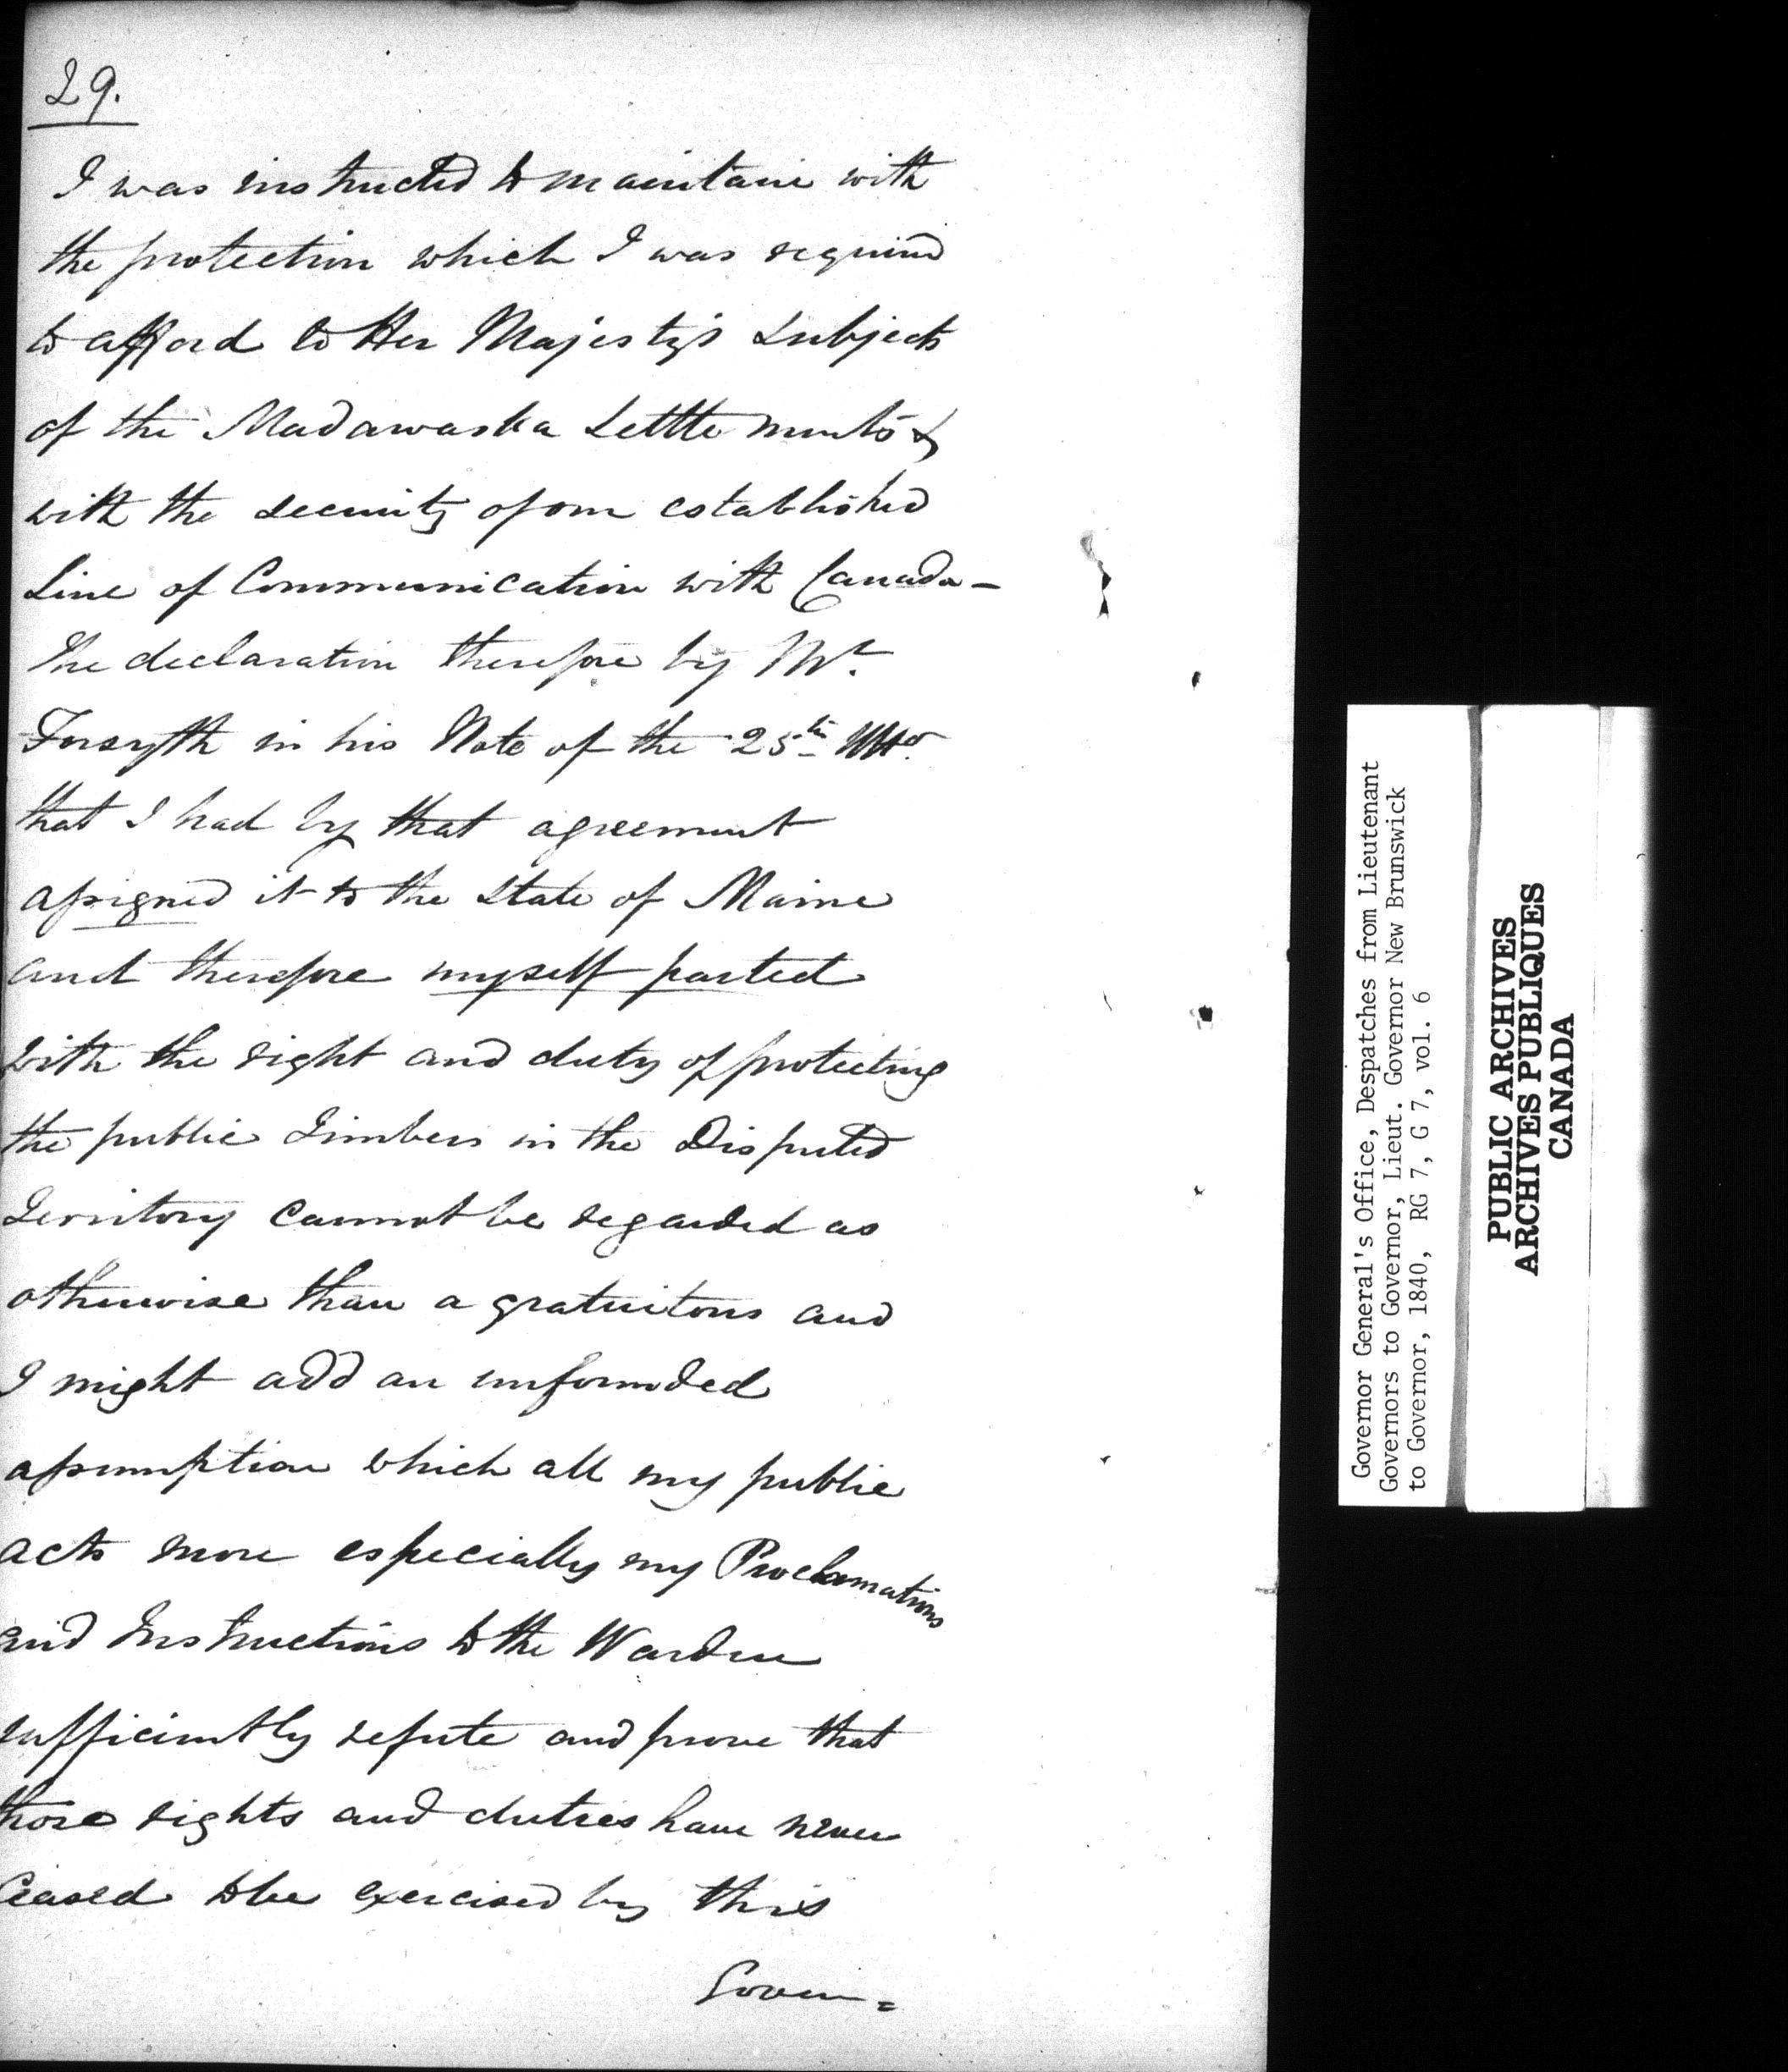 29.
I was instructed to maintain with
the protection which I was required
to afford to Her Majesty's Subjects
of the Madawaska Settlements &
with the security of our established
Line of Communication with Canada –
The declaration therefore by Mr.
Forsyth in his Note of the 25th Ulto.
that I had by that agreement
assigned it to the State of Maine
and therefore myself parted
with the right and duty of protecting
the public Timber in the Disputed
Territory cannot be regarded as
otherwise than a gratuitous and
I might add an unfounded
assumption which all my public
acts more especially my Proclamations
and Instructions to the Warden
sufficiently refute and prove that
those rights and duties have never
ceased to be exercised by this
Govern=
Governor General's Office, Despatches from Lieutenant
Governors to Governor, Lieut. Governor New Brunswick
to Governor, 1840, RG 7, G 7, vol. 6
PUBLIC ARCHIVES
ARCHIVES PUBLIQUES
CANADA